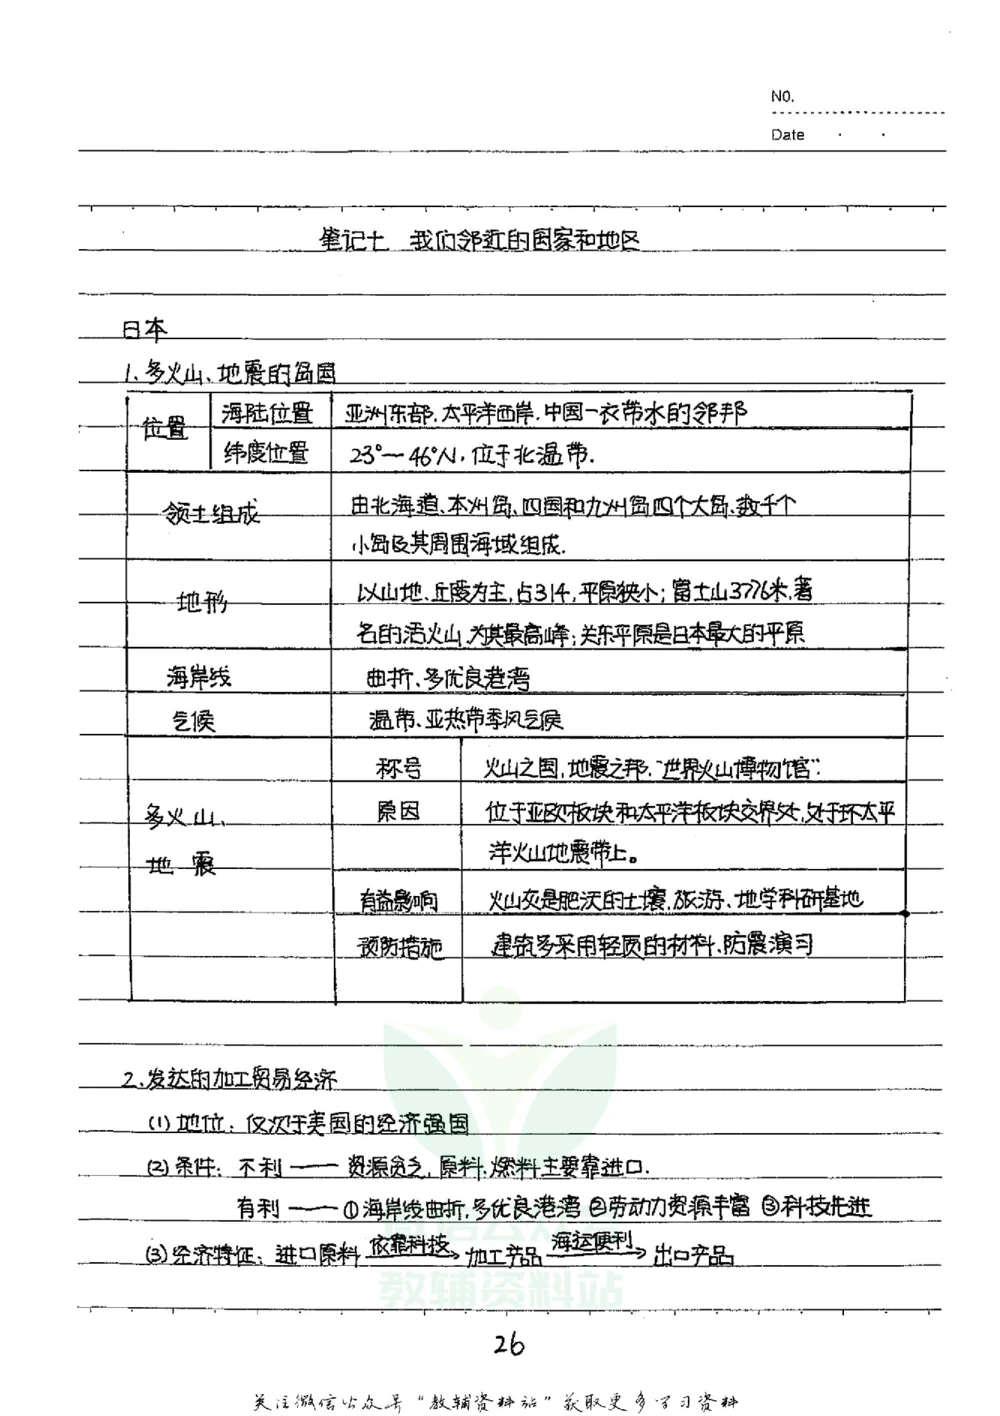 NO.
Date · ·
笔记七 我们邻近的国家和地区
日本
1.多火山、地震的岛国
位置 海陆位置 亚洲东部.太平洋西岸.中国一衣带水的邻邦
纬度位置 23°—46°N,位于北温带.
领土组成 由北海道、本州岛、四国和九州岛四个大岛、数千个
小岛及其周围海域组成.
地形 以山地、丘陵为主,占3/4,平原狭小;富士山3776米,著
名的活火山,为其最高峰;关东平原是日本最大的平原
海岸线 曲折、多优良港湾
气候 温带、亚热带季风气候
多火山、地震 称号 火山之国,地震之邦,“世界火山博物馆”.
原因 位于亚欧板块和太平洋板块交界处,处于环太平
洋火山地震带上。
有益影响 火山灰是肥沃的土壤,旅游、地学科研基地
预防措施 建筑多采用轻质的材料、防震演习
2.发达的加工贸易经济
(1)地位:仅次于美国的经济强国
(2)条件:不利——资源贫乏,原料、燃料主要靠进口.
有利——①海岸线曲折,多优良港湾 ②劳动力资源丰富 ③科技先进
(3)经济特征:进口原料 依靠科技→ 加工产品 海运便利→ 出口产品
教辅资料站
26
关注微信公众号“教辅资料站”获取更多学习资料